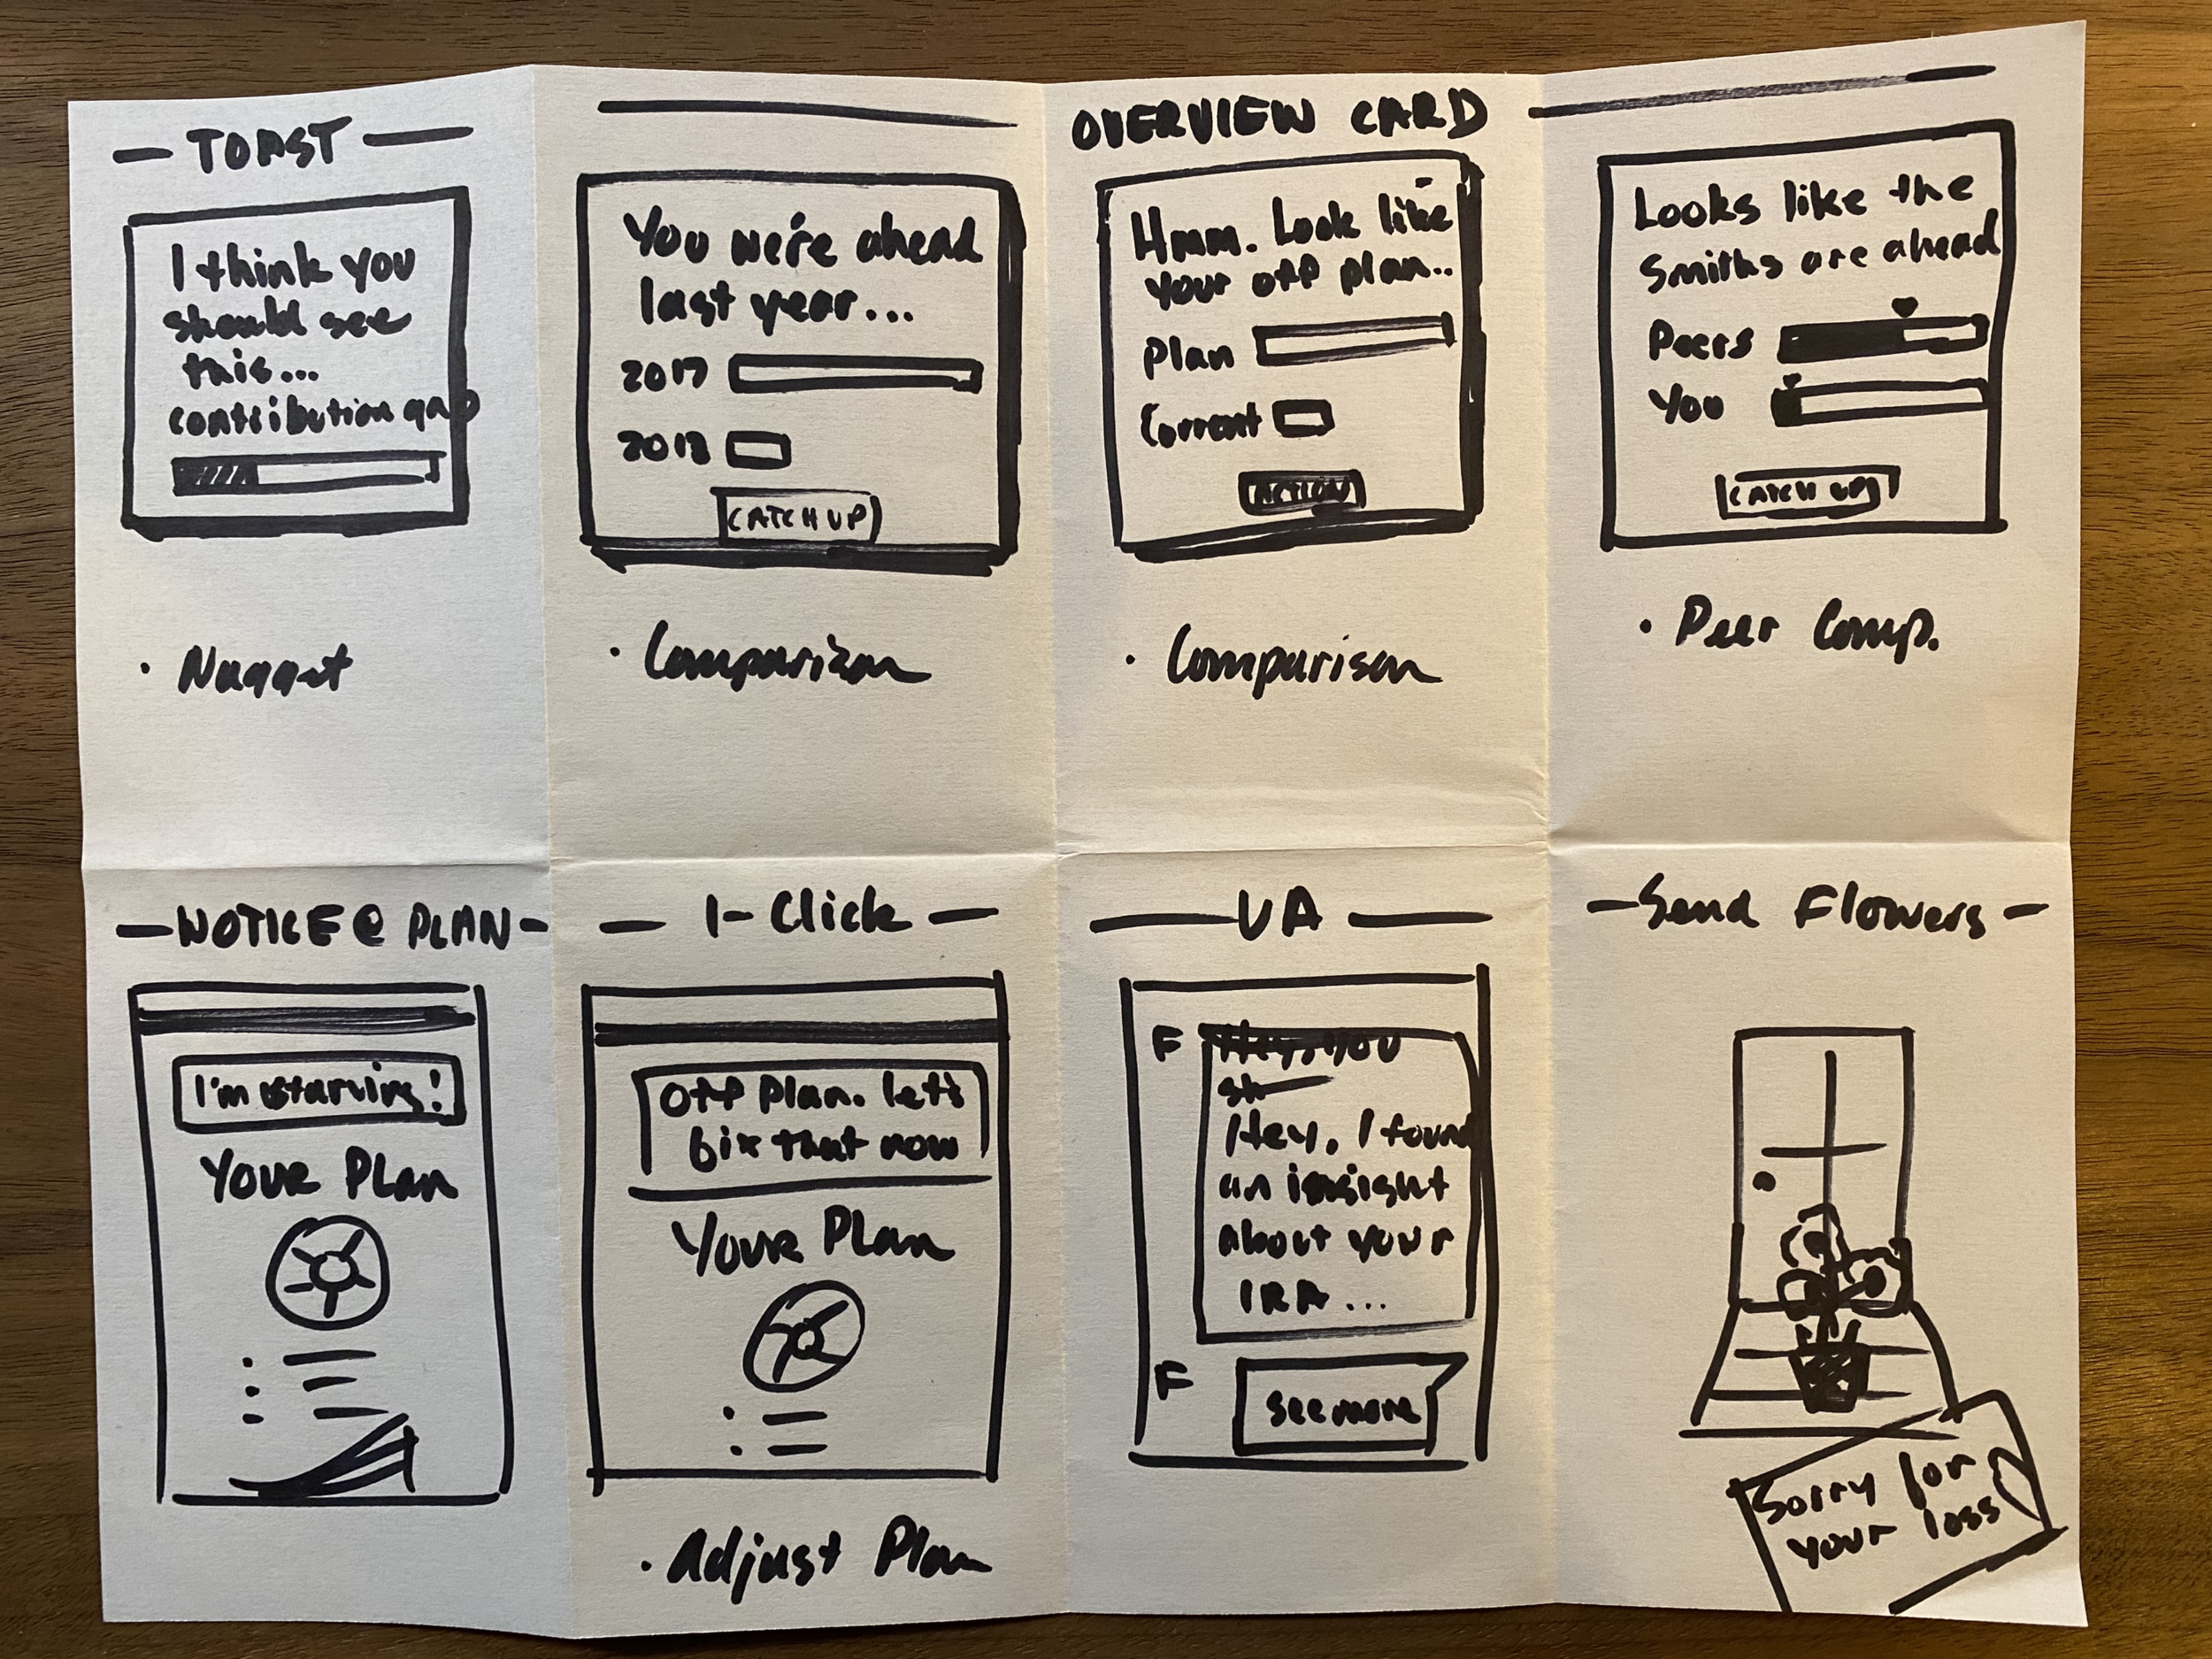 TOAST
I think you
should see
this...
contribution gap
• Nugget
OVERVIEW CARD
You we're ahead
last year...
2017
2018
CATCH UP
• Comparison
Hmm. Look like
your off plan..
Plan
Current
ACTION
• Comparison
Looks like the
Smiths are ahead
Peers
You
CATCH UP
• Peer Comp.
NOTICE @ PLAN
I'm starving!
Your Plan
1-Click
Off plan. let's
fix that now
Your Plan
• Adjust Plan
VA
F
Hey, you
sh
Hey, I found
an insight
about your
IRA...
F
see more
Send Flowers
Sorry for
your loss